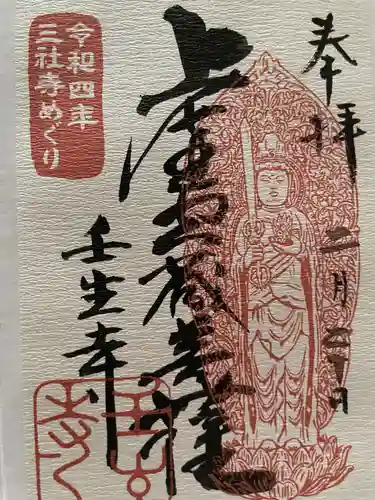 令和四年
三社寺めぐり
奉拝
二月二十日
虚空蔵菩薩
壬生寺